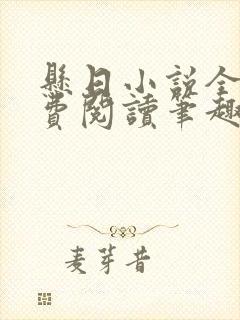 懸日小說全
費閱讀筆趣
麦芽昔